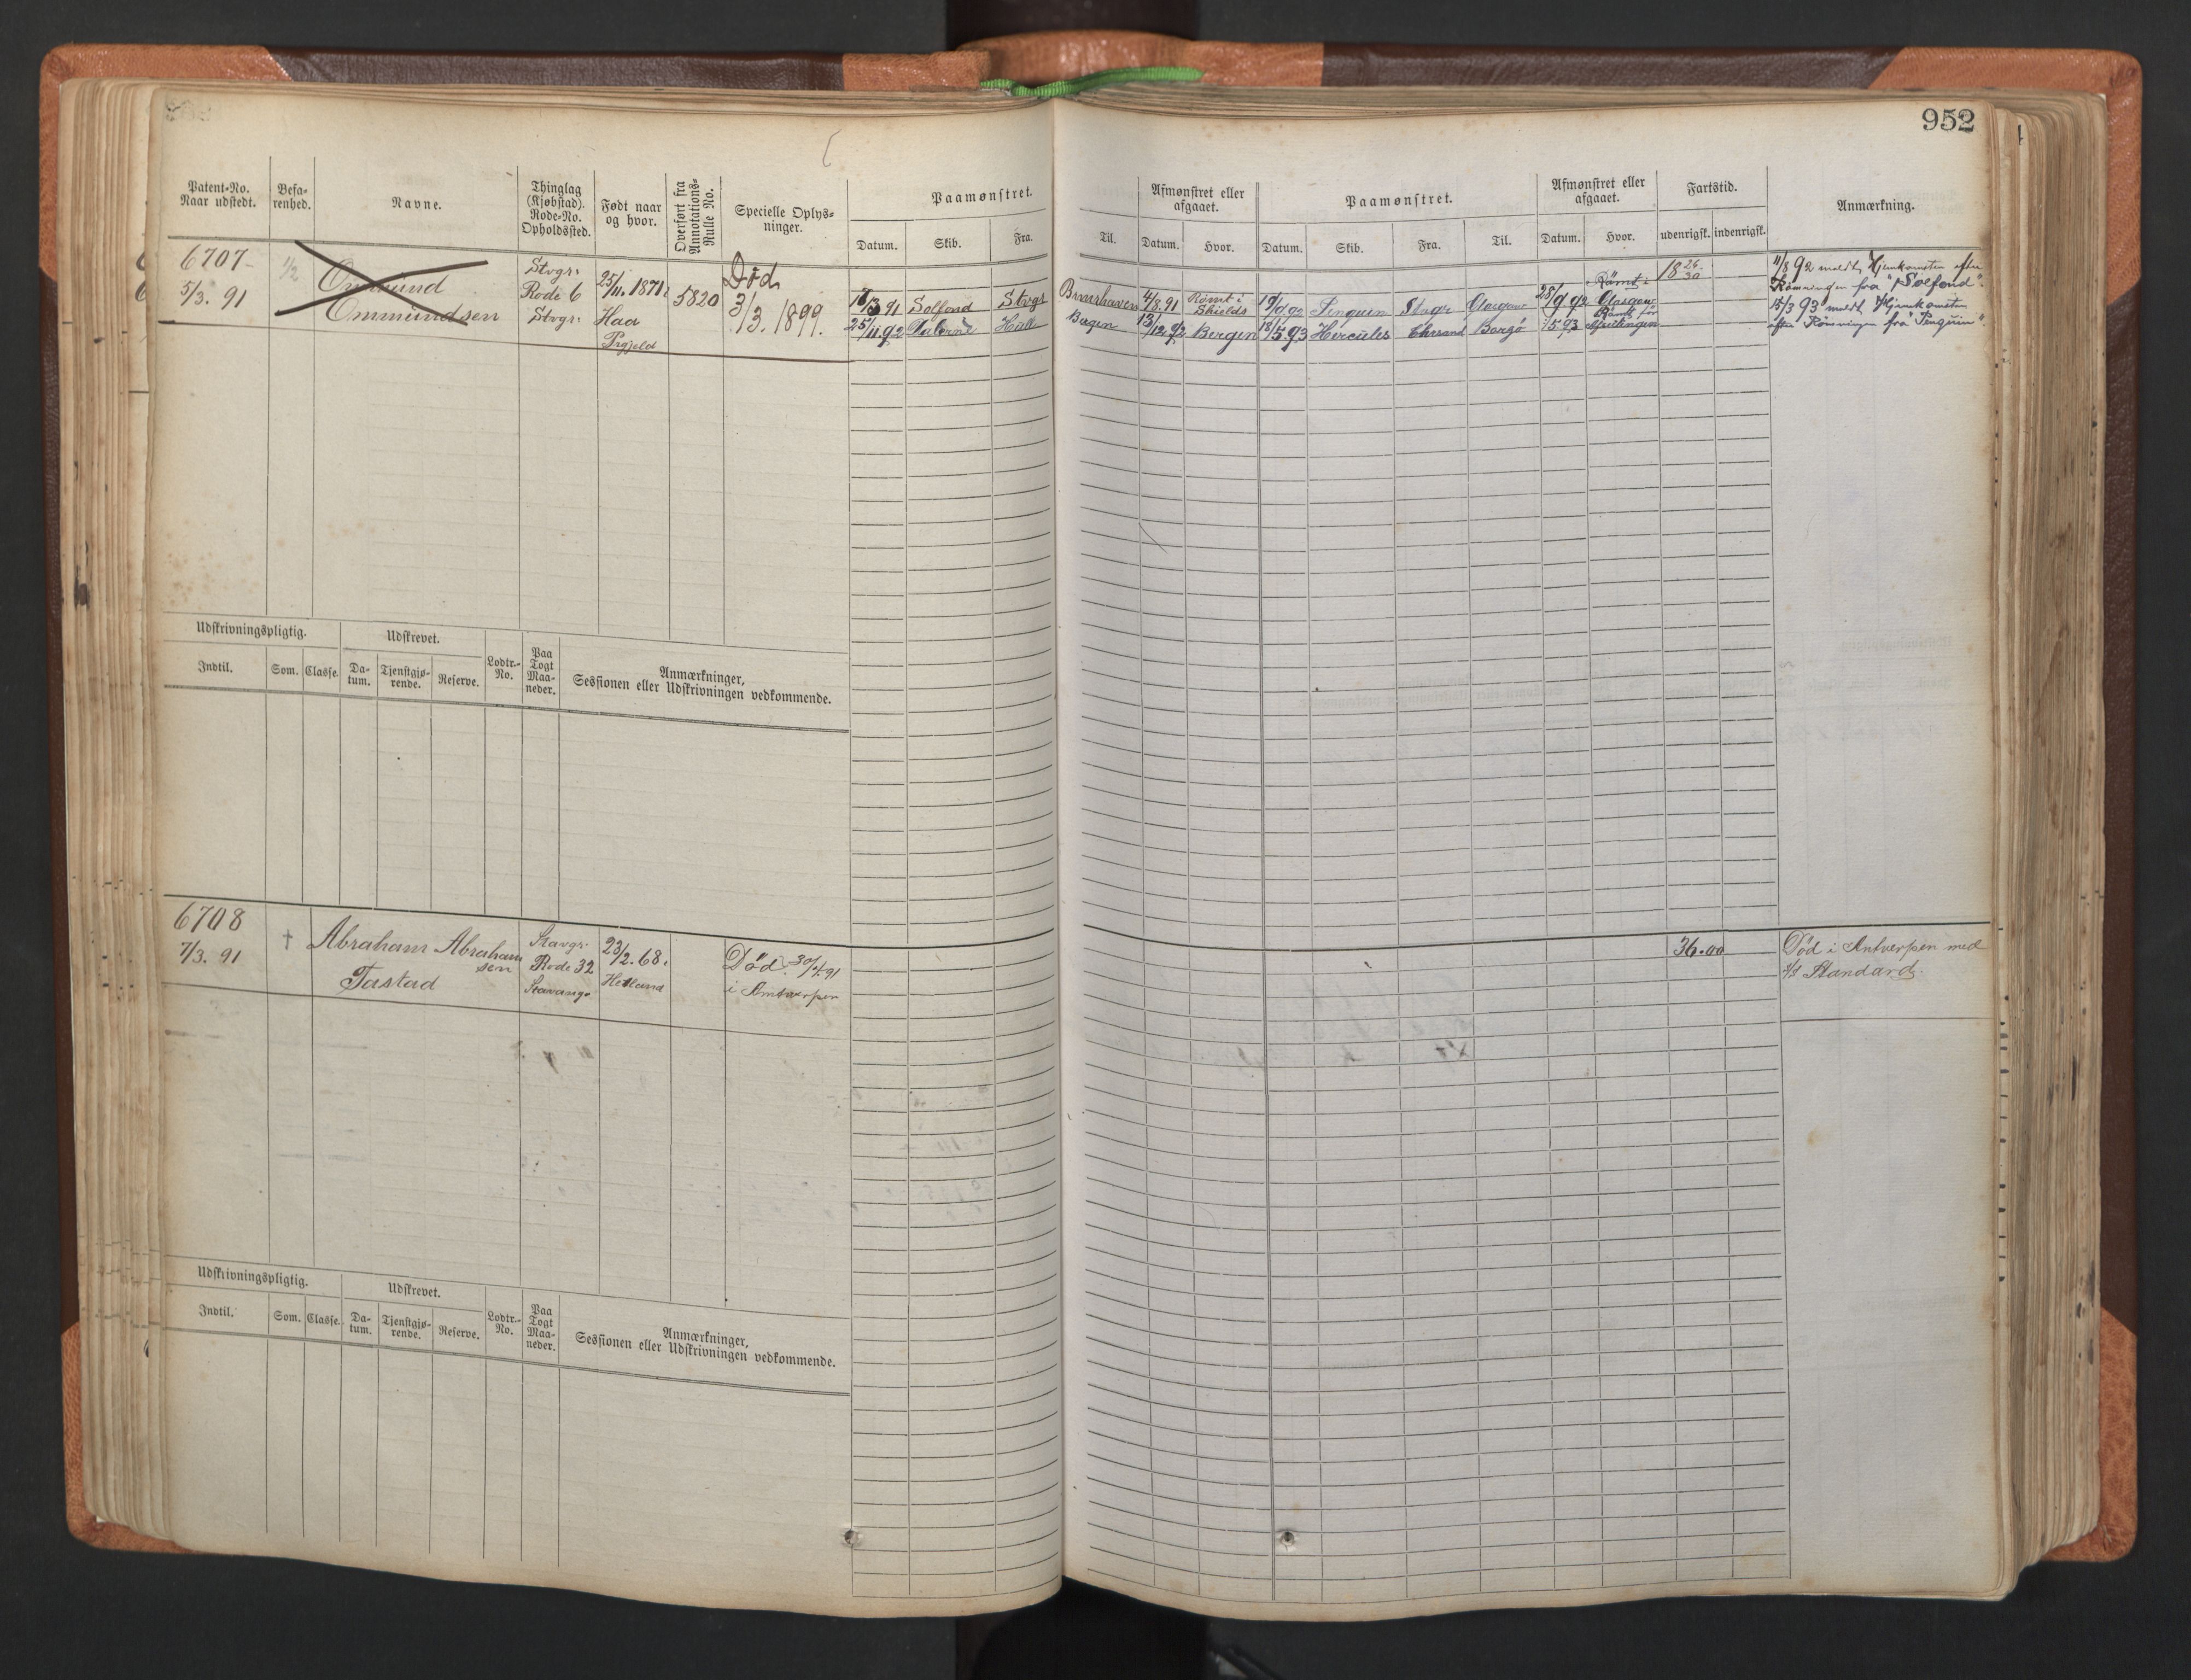 952
Patent-No. Naar udstedt.
Befa-renhed.
Navne.
Thinglag (Kjøbstad). Rode-No. Opholdssted.
Født naar og hvor.
Overført fra Annotations-Rulle No.
Specielle Oplys-ninger.
Paamønstret.
Datum. Skib. Fra. Til.
Afmønstret eller afgaaet.
Datum. Hvor.
Paamønstret.
Datum. Skib. Fra. Til.
Afmønstret eller afgaaet.
Datum. Hvor.
Fartstid.
udenrigsk. indenrigsk.
Anmærkning.
6707
5/3. 91
1/2
Ommund
Ommundsen
Stvgr.
Rode 6
Stvgr.
25/11. 1871
Haa
Prgjeld
5820
Død
3/3. 1899.
91 Solfond Stvgr
4/8.91 Rømt i Shields
92 Penguin Stvgr Glasgow
28/9 92 Rømt i Glasgow
18 26/30
11/8 92 meldt Hjemkomsten efter
Rømningen fra "Solfond".
25/11.92 Hull
Bergen 13/12.92 Bergen
93 Hercules Chrsand Borgø
93 Rømt før
15/3 93 meldt Hjemkomsten
efter Rømningen fra "Penguin".
Udskrivningspligtig.
Udskrevet.
Indtil. Som. Classe. Da-tum. Tjenstgjø-rende. Reserve.
Lodtr.-No.
Paa Togt Maa-neder.
Anmærkninger,
Sessionen eller Udskrivningen vedkommende.
6708
7/3. 91
†
Abraham Abraham
sen
Tastad
Stavgr.
Rode 32
Stavangr
23/2. 68.
Hetland
Død 30/4.91
i Antwerpen
36.00
Død i Antwerpen med
s/s Standard.
Udskrivningspligtig.
Udskrevet.
Indtil. Som. Classe. Da-tum. Tjenstgjø-rende. Reserve.
Lodtr.-No.
Paa Togt Maa-neder.
Anmærkninger,
Sessionen eller Udskrivningen vedkommende.